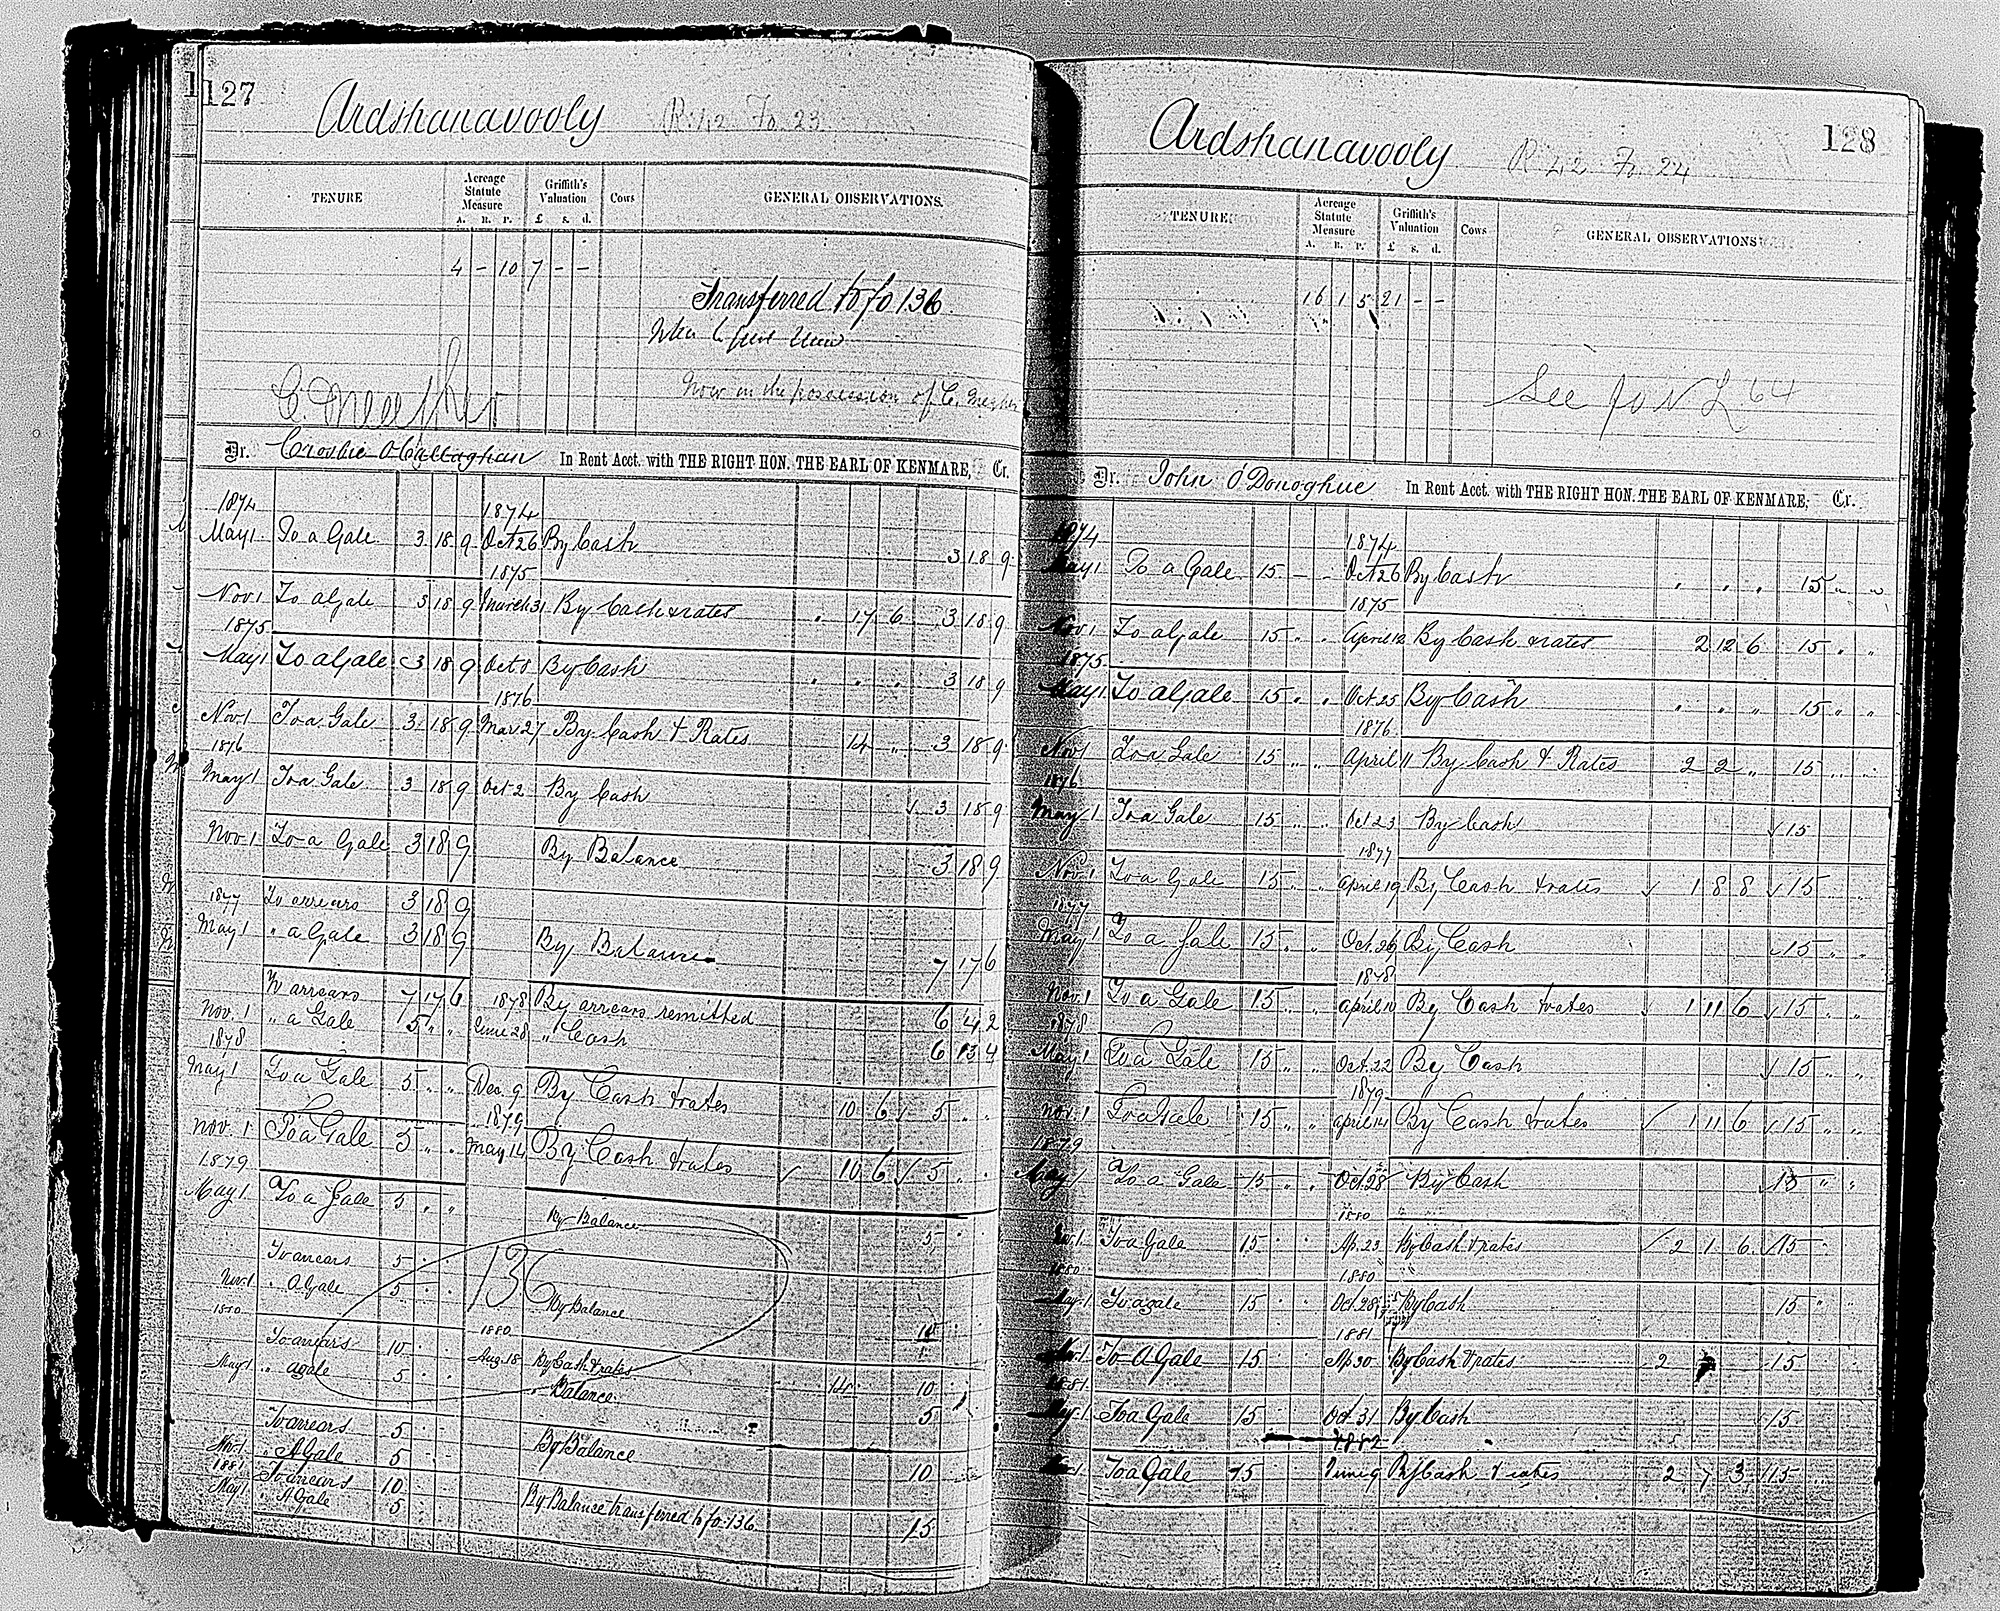 127
Ardshanavooly R. 42 Fo. 23
TENURE Acreage Statute Measure Griffith's Valuation Cows GENERAL OBSERVATIONS.
A. R. P. £ s. d.
4 - 10 7 - -
Transferred to fo 136
Now in the possession of C. Meagher
Dr. Crosbie O'Callaghan In Rent Acct. with THE RIGHT HON. THE EARL OF KENMARE, Cr.
1874 1874
May 1 To a Gale 3 18 9 Oct 26 By Cash 3 18 9
1875
Nov. 1 To a Gale 3 18 9 March 31 By Cash & rates " 17 6 3 18 9
1875
May 1 To a Gale 3 18 9 Oct 8 By Cash " " " 3 18 9
1876
Nov. 1 To a Gale 3 18 9 Mar 27 By Cash & Rates 14 " 3 18 9
1876
May 1 To a Gale 3 18 9 Oct 2 By Cash 3 18 9
Nov. 1 To a Gale 3 18 9 By Balance 3 18 9
1877 To arrears 3 18 9
May 1 " a Gale 3 18 9 By Balance 7 17 6
To arrears 7 17 6 1878 By arrears remitted 6 4 2
Nov. 1 " a Gale 5 " " June 28 " Cash 6 13 4
1878
May 1 To a Gale 5 " " Dec 9 By Cash & rates 10 6 5 " "
1879
Nov. 1 To a Gale 5 " " May 14 By Cash & rates 10 6 5 " "
1879
May 1 To a Gale 5 " " By Balance 5 " "
To arrears 5 " "
136
Nov. 1 " A Gale 5 " " By Balance 10
1880 1880
To arrears 10 " " Aug. 18 By Cash & rates 14 10
May 1 " a gale 5 " " Balance 5
To arrears 5
Nov. 1 " A Gale 5 By Balance 10
1881 To arrears 10
May 1 " A Gale 5 By Balance transferred to fo 136 15
128
Ardshanavooly R. 42 Fo. 24
TENURE. Acreage Statute Measure Griffith's Valuation Cows GENERAL OBSERVATIONS
A. R. P. £ s. d.
16 1 5 21 - -
See fo N L 64
Dr. John O'Donoghue In Rent Acct. with THE RIGHT HON. THE EARL OF KENMARE, Cr.
1874 1874
May 1 To a Gale 15 - - Oct 26 By Cash " " " 15 " "
1875
Nov. 1 To a Gale 15 " " April 12 By Cash & rates 2 12 6 15 " "
1875
May 1 To a Gale 15 " " Oct 25 By Cash " " " 15 " "
1876
Nov. 1 To a Gale 15 " " April 11 By Cash & Rates 2 2 " 15 " "
1876
May 1 To a Gale 15 " " Oct 23 By Cash 15
1877
Nov. 1 To a Gale 15 " " April 19 By Cash & rates 1 8 8 15 " "
1877
May 1 To a Gale 15 " " Oct. 29 By Cash 15 " "
1878
Nov. 1 To a Gale 15 " " April 10 By Cash & rates 1 11 6 15 " "
1878
May 1 To a Gale 15 " " Oct. 22 By Cash 15 " "
1879
Nov. 1 To a Gale 15 " " April 14 By Cash & rates 1 11 6 15 " "
1879
May 1 To a Gale 15 " " Oct. 28 By Cash 15 " "
1880
Nov. 1 To a Gale 15 " " Ap. 23 By Cash & rates 2 1 6 15 "
1880 1880
May 1 To a gale 15 " " Oct. 28 By Cash 15 "
1881
Nov. 1 To A Gale 15 Ap 30 By Cash & rates 2 15
1881
May 1 To a Gale 15 Oct. 31 By Cash 15
1882
Nov. 1 To a Gale 15 June 9 By Cash & rates 2 7 3 15